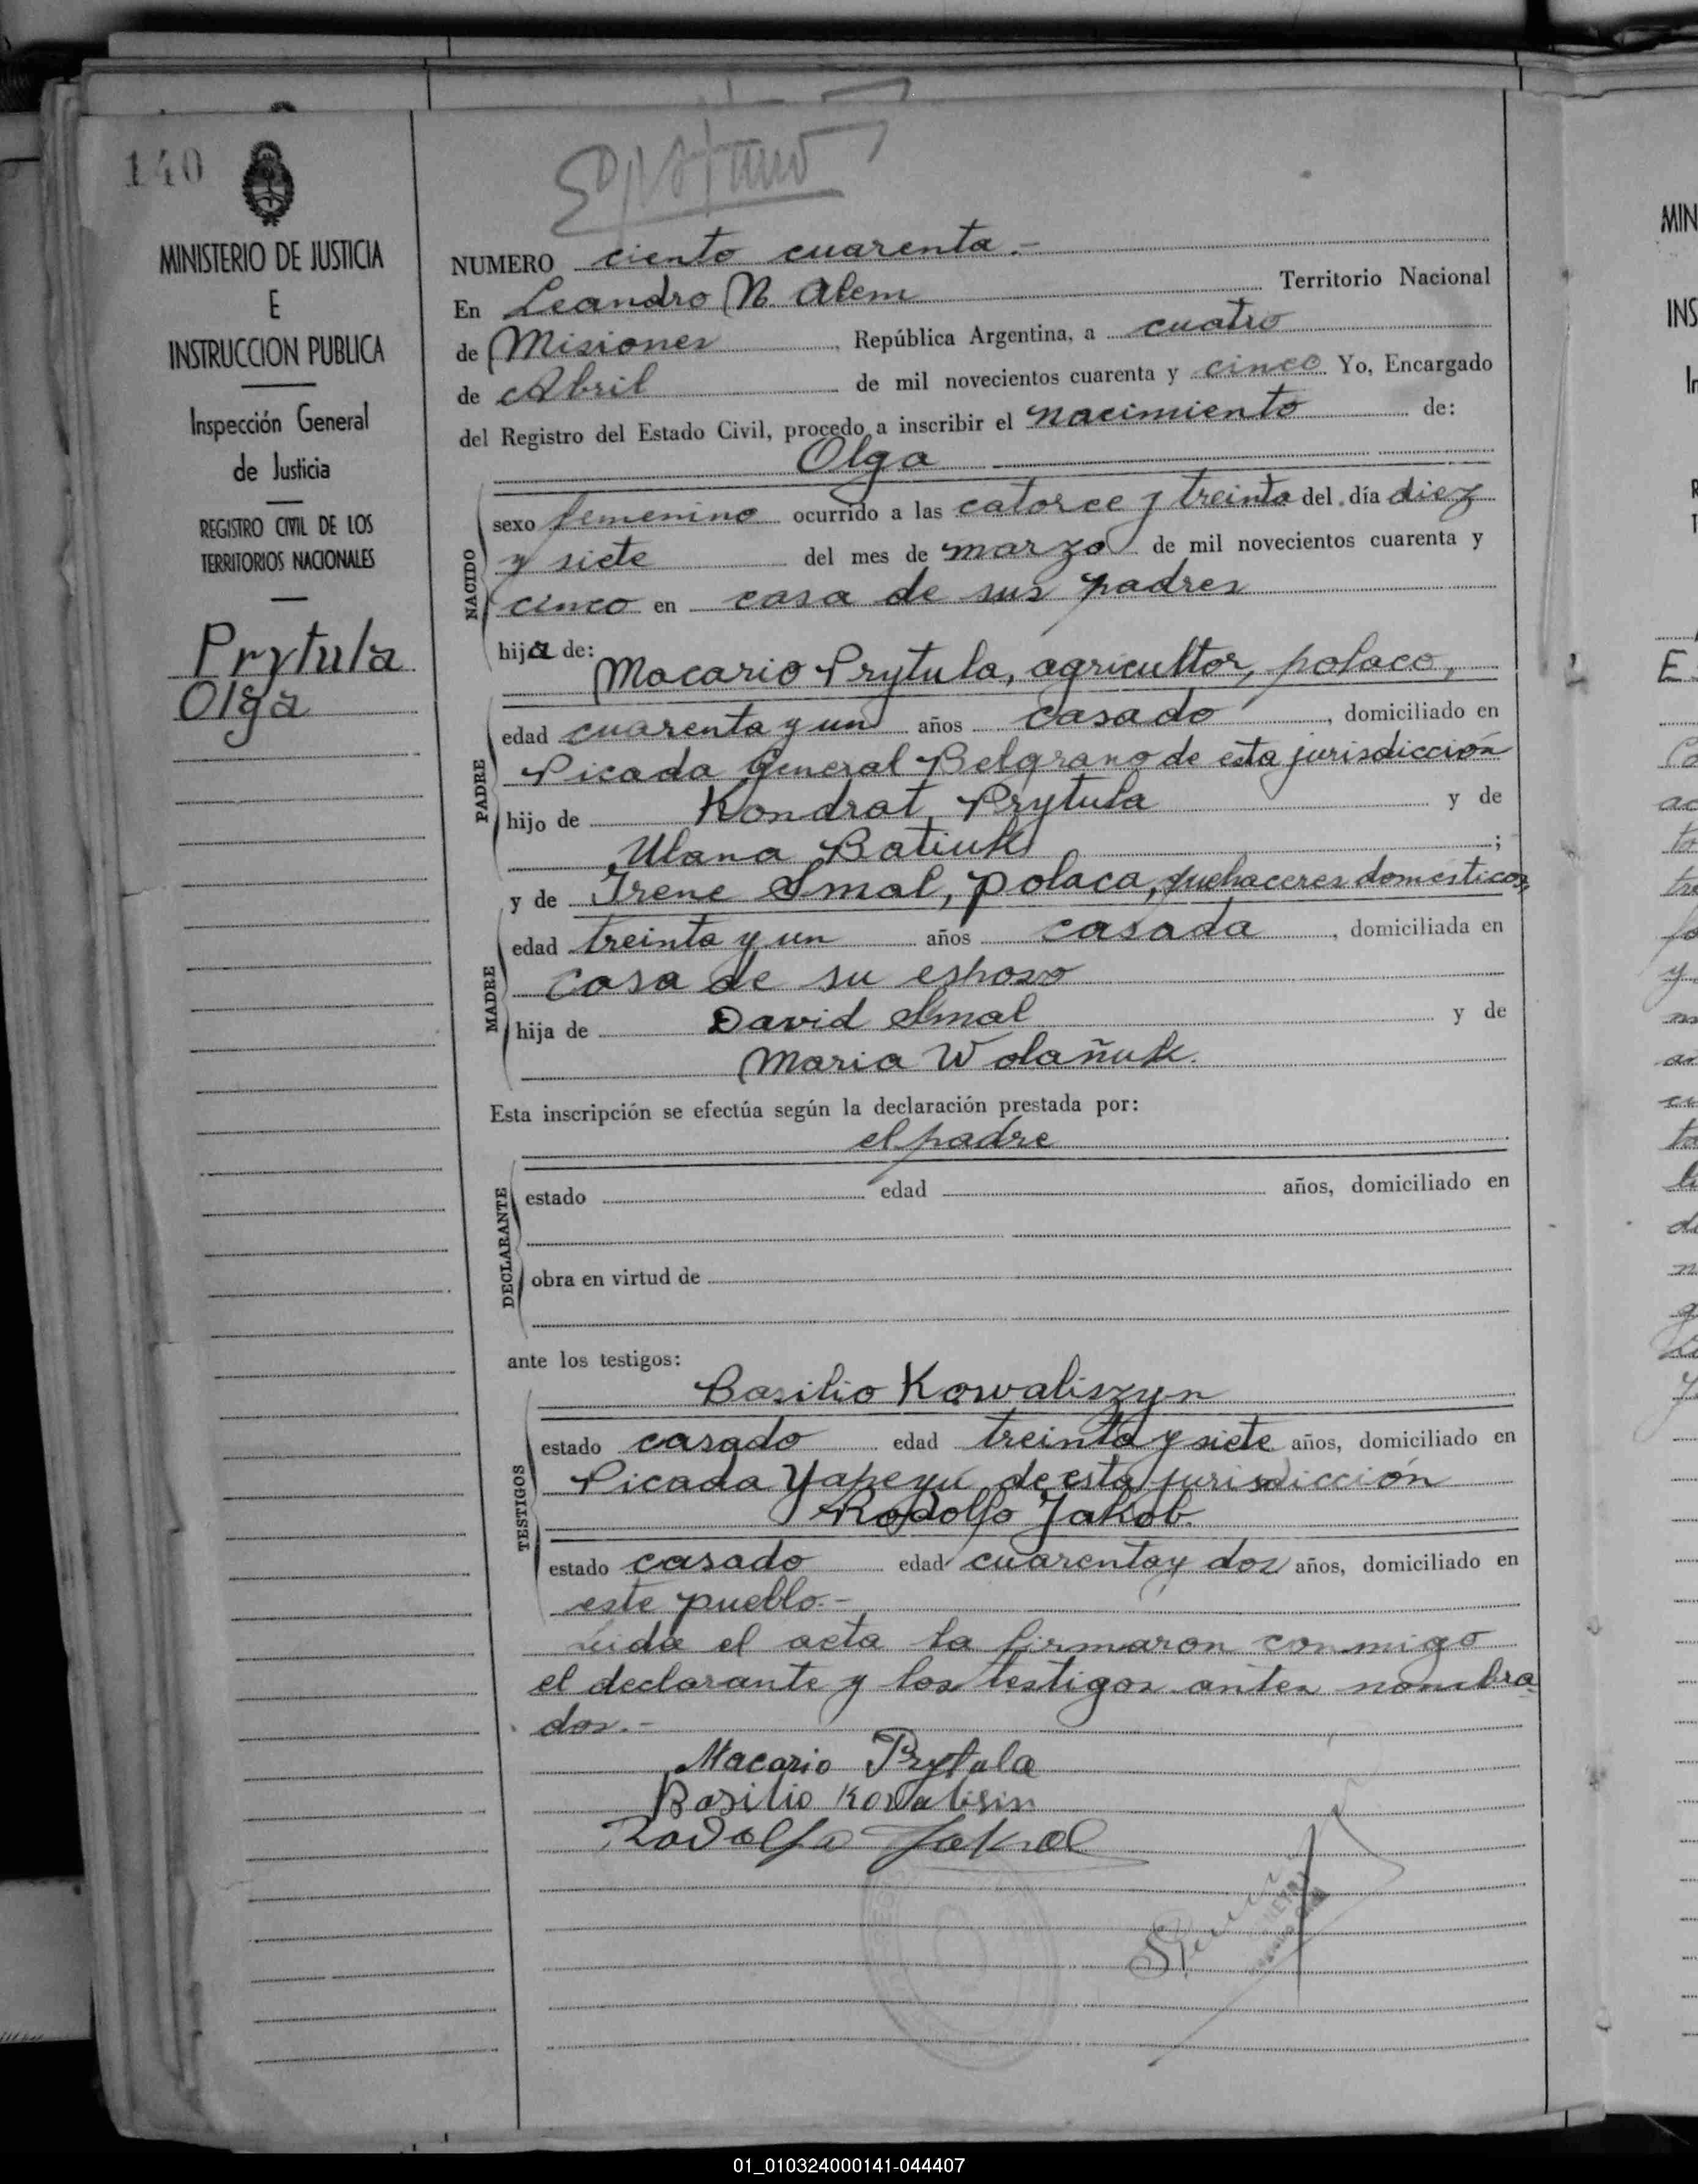 140
MINISTERIO DE JUSTICIA
E
INSTRUCCION PUBLICA
Inspección General
de Justicia
REGISTRO CIVIL DE LOS
TERRITORIOS NACIONALES
Prytula
Olga
NUMERO ciento cuarenta.-
En Leandro N. Alem Territorio Nacional
de Misiones, República Argentina, a cuatro
de Abril de mil novecientos cuarenta y cinco Yo, Encargado
del Registro del Estado Civil, procedo a inscribir el nacimiento de:
Olga
NACIDO
sexo femenino ocurrido a las catorce y treinta del día diez
y siete del mes de marzo de mil novecientos cuarenta y
cinco en casa de sus padres
hija de:
Macario Prytula, agricultor, polaco,
PADRE
edad cuarenta y un años casado, domiciliado en
Picada General Belgrano de esta jurisdicción
hijo de Kondrat Prytula y de
Ulana Batiuk;
y de Irene Smal, polaca, quehaceres domesticos,
MADRE
edad treinta y un años casada, domiciliada en
casa de su esposo
hija de David Smal y de
Maria Wolañuk.
Esta inscripción se efectúa según la declaración prestada por:
el padre
DECLARANTE
estado edad años, domiciliado en
obra en virtud de
ante los testigos:
Basilio Kowaliszyn
TESTIGOS
estado casado edad treinta y siete años, domiciliado en
Picada Yapeyú de esta jurisdicción
Rodolfo Jakob.
estado casado edad cuarenta y dos años, domiciliado en
este pueblo.-
Leida el acta la firmaron conmigo
el declarante y los testigos antes nombra
dos.-
Macario Prytula
Basilio Kovalisin
Rodolfo Jakob
MIN
INS
01_010324000141-044407